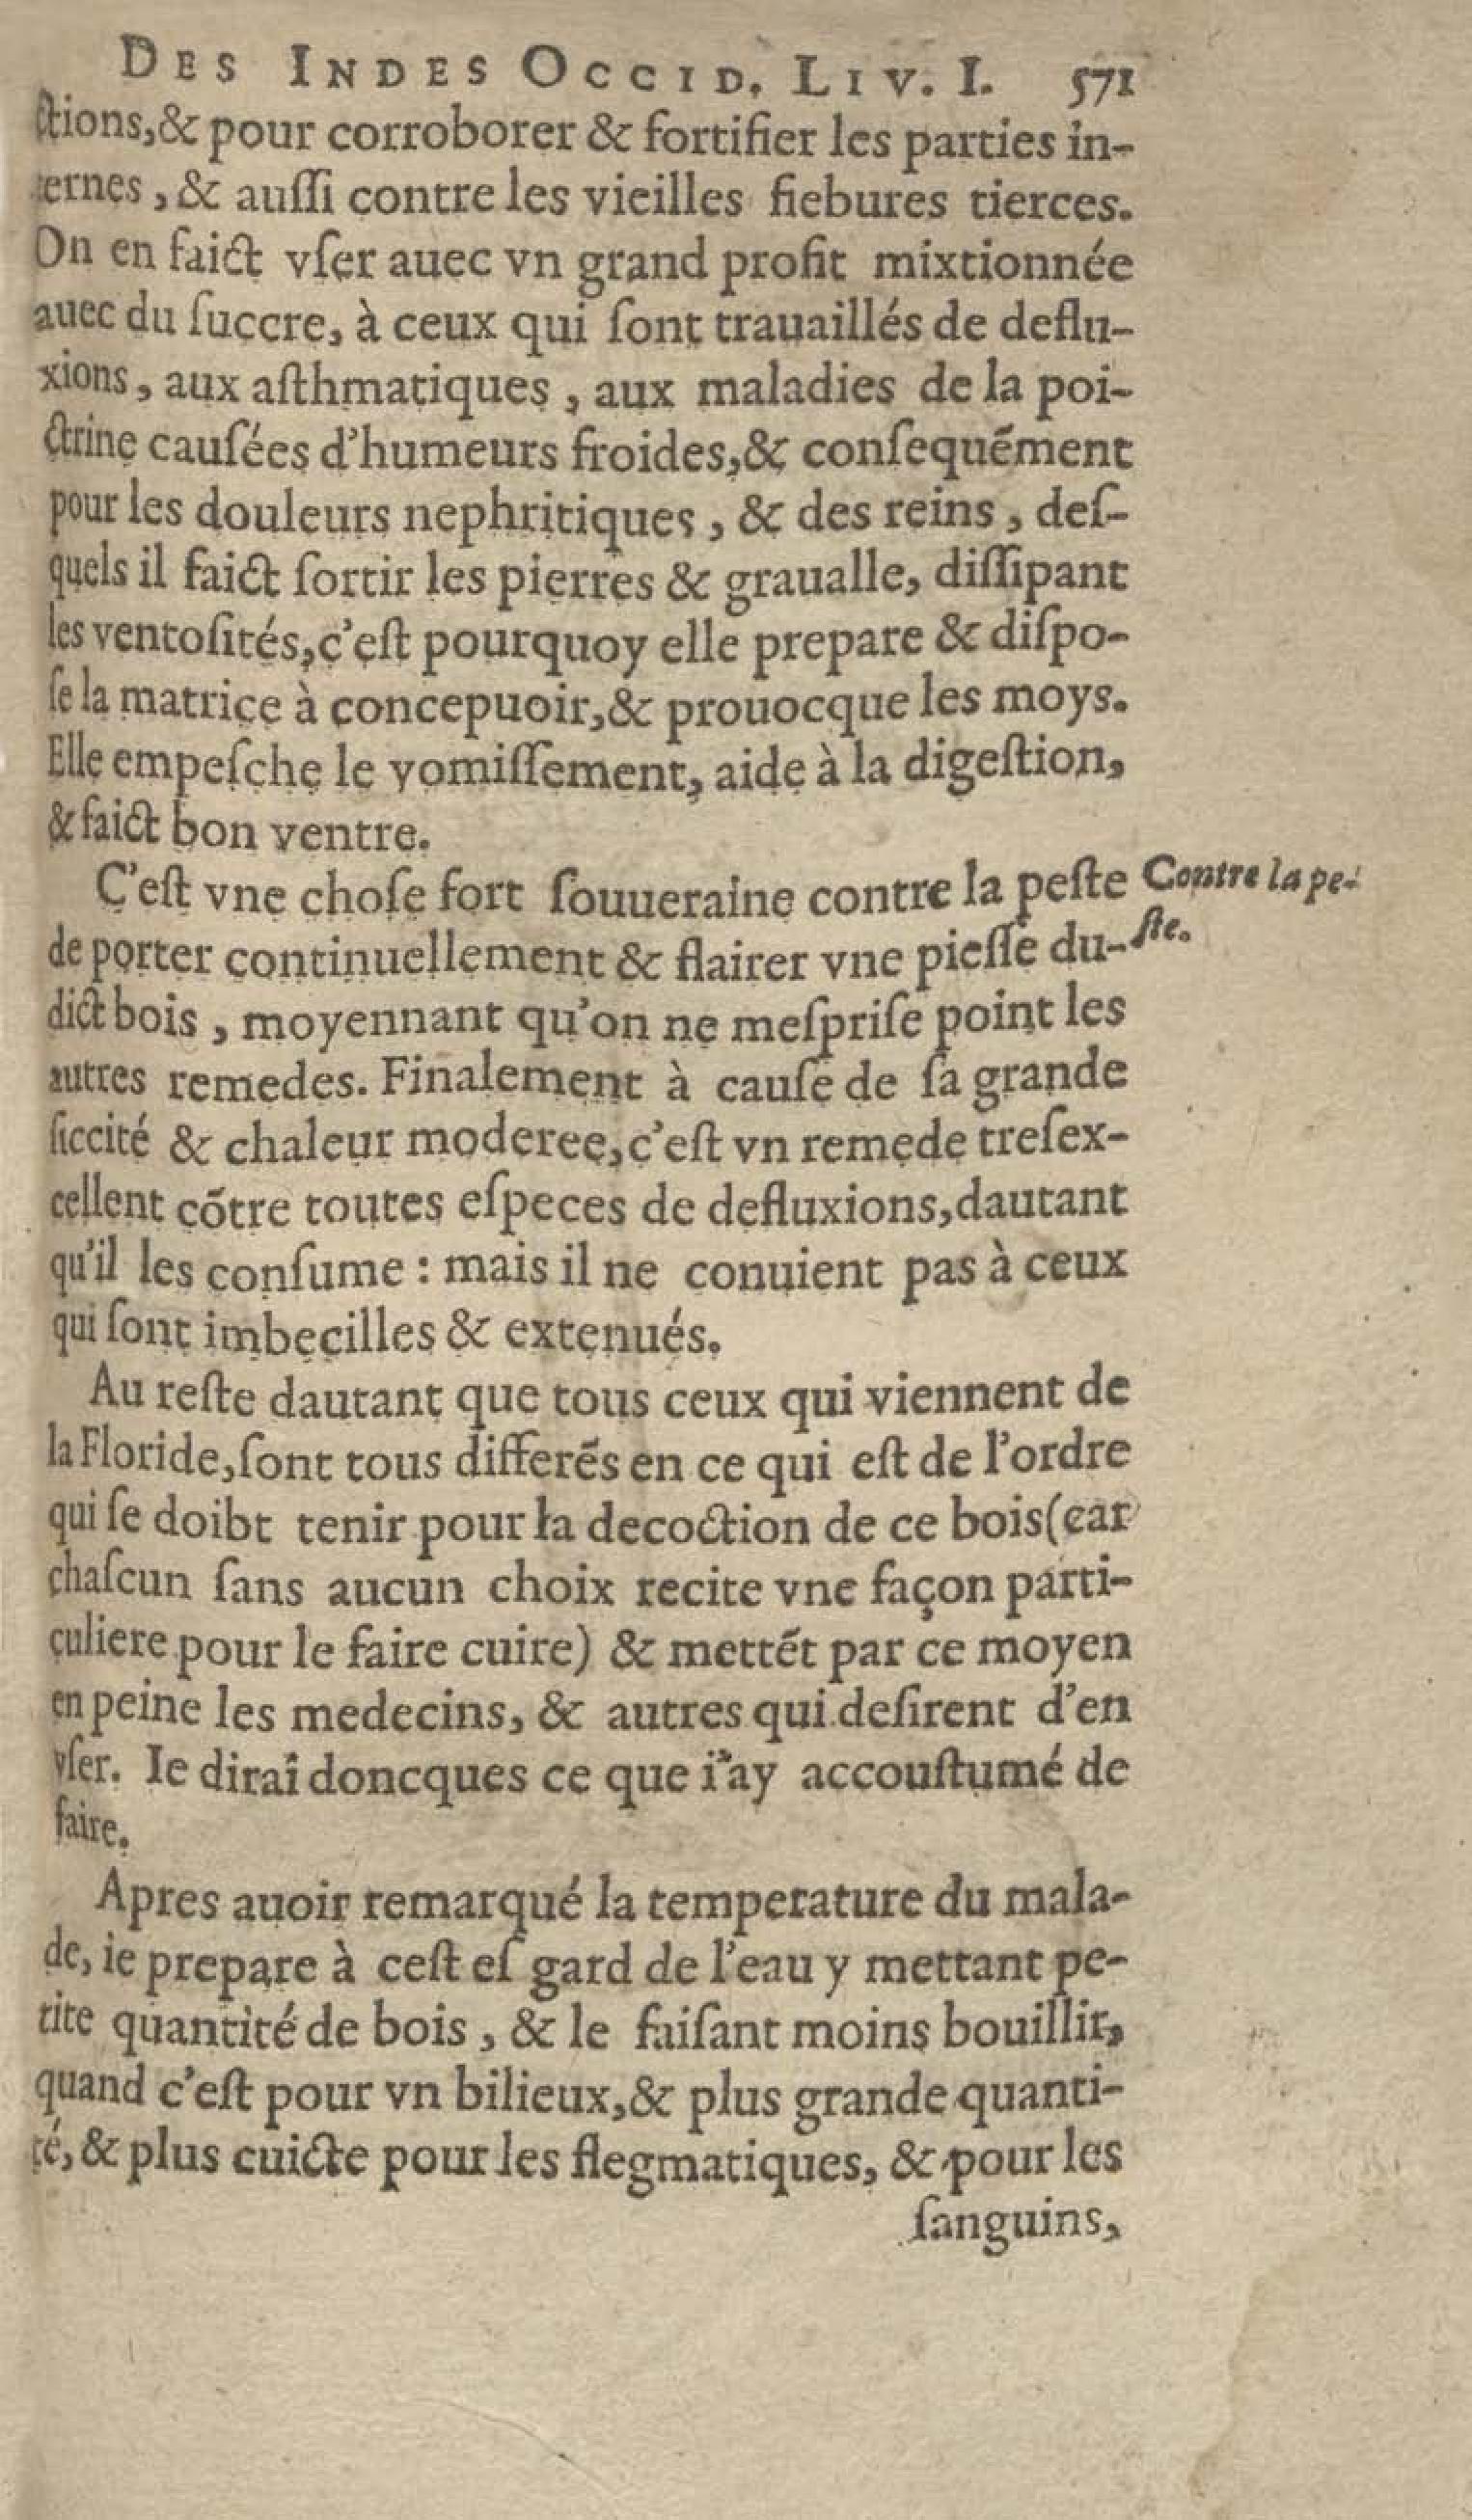 DES INDES OCCID. LIV. I. 571
ctions,& pour corroborer & fortifier les parties in-
ternes, & auſſi contre les vieilles fiebures tierces.
On en faict vſer auec vn grand profit mixtionnée
auec du ſuccre, à ceux qui ſont trauaillés de deflu-
xions, aux aſthmatiques, aux maladies de la poi-
ctrine cauſées d'humeurs froides,& conſequẽment
pour les douleurs nephritiques, & des reins, deſ-
quels il faict ſortir les pierres & graualle, diſſipant
les ventoſités,c'eſt pourquoy elle prepare & diſpo-
ſe la matrice à concepuoir,& prouocque les moys.
Elle empeſche le vomiſſement, aide à la digeſtion,
& faict bon ventre.
C'eſt vne choſe fort ſouueraine contre la peſte
Contre la pe-
ſte.
de porter continuellement & flairer vne pieſſe du-
dict bois, moyennant qu'on ne meſpriſe point les
autres remedes. Finalement à cauſe de ſa grande
ſiccité & chaleur moderee,c'eſt vn remede treſex-
cellent cõtre toutes eſpeces de defluxions,dautant
qu'il les conſume : mais il ne conuient pas à ceux
qui ſont imbecilles & extenués.
Au reſte dautant que tous ceux qui viennent de
la Floride,ſont tous differẽs en ce qui eſt de l'ordre
qui ſe doibt tenir pour la decoction de ce bois(car
chaſcun ſans aucun choix recite vne façon parti-
culiere pour le faire cuire) & mettẽt par ce moyen
en peine les medecins, & autres qui deſirent d'en
vſer. Ie dirai doncques ce que i'ay accouſtumé de
faire.
Apres auoir remarqué la temperature du mala-
de, ie prepare à ceſt eſ gard de l'eau y mettant pe-
tite quantité de bois, & le faiſant moins bouillir,
quand c'eſt pour vn bilieux,& plus grande quanti-
té, & plus cuicte pour les flegmatiques, & pour les
ſanguins,